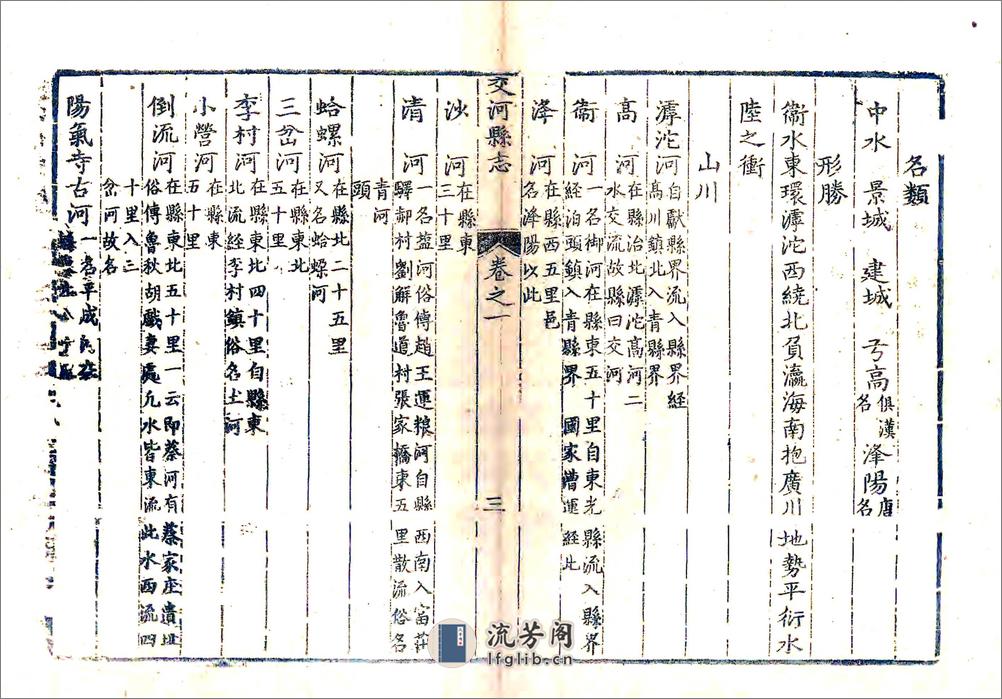 名類
中水　景城　建城　弓高俱漢名　洚陽唐名
形勝
衞水東環滹沱西繞北負瀛海南抱廣川　地勢平衍水
陸之衝
山川
滹沱河自獻縣界流入縣界經
高川鎮北入青縣界
高　河在縣治北滹沱高河二
水交流故縣曰交河
衞　河一名御河在縣東五十里自東光縣流入縣界
經泊頭鎮入青縣界　國家漕運經此
洚　河在縣西五里邑
名洚陽以此
交河縣志
卷之一
三
沙　河在縣東
三十里
清　河一名盐河俗傳趙王運粮河自縣西南入富莊
驛郝村劉解魯道村張家橋東五里散流俗名
青河
頭
蛤螺河在縣北二十五里
又名蛤蜾河
三岔河在縣東北
五十里
李村河在縣東北四十里自縣東
北流經李村鎮俗名土河
小營河在縣東
五十里
倒流河在縣東北五十里一云即蔡河有蔡家座遺址
俗傳魯秋胡戲妻處凢水皆東流此水西流四
十里入三
岔河故名
陽氣寺古河一名平成河在
流芳阁
lfglib.cn